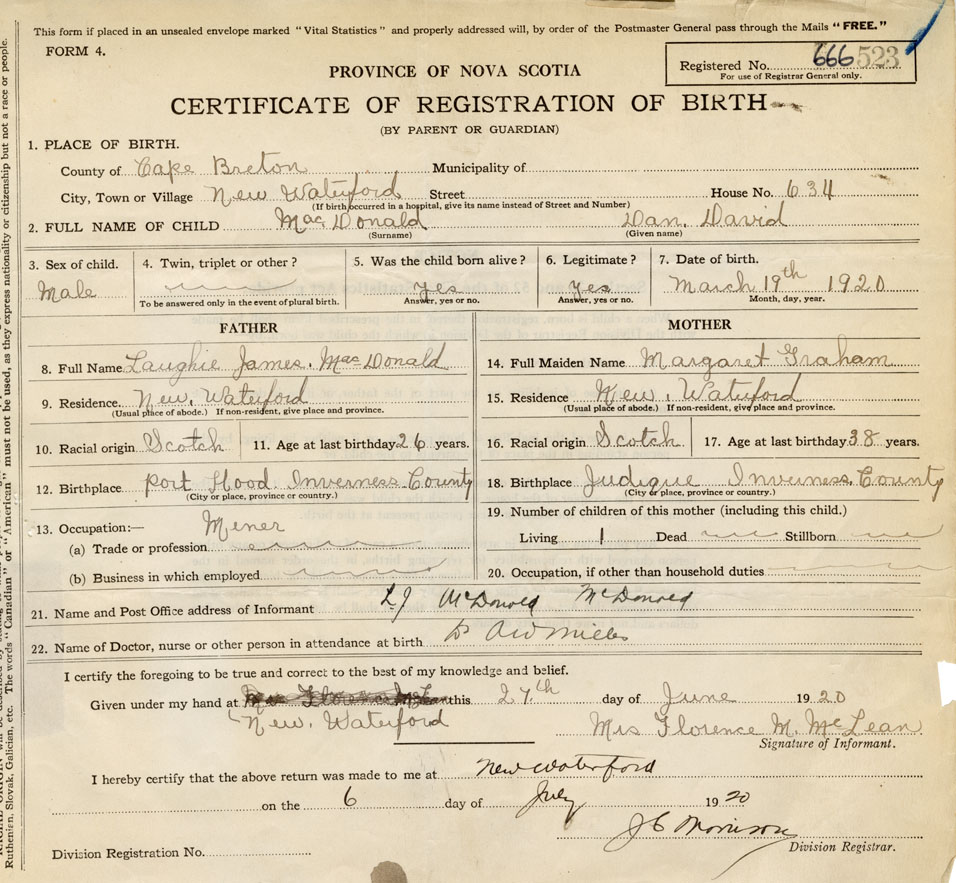 This form if placed in an unsealed envelope marked "Vital Statistics" and properly addressed will, by order of the Postmaster General pass through the Mails "FREE."
FORM 4.
Registered No. 666 523
For use of Registrar General only.
PROVINCE OF NOVA SCOTIA
CERTIFICATE OF REGISTRATION OF BIRTH
(BY PARENT OR GUARDIAN)
1. PLACE OF BIRTH.
County of Cape Breton Municipality of
City, Town or Village New Waterford Street House No. 634
(If birth occurred in a hospital, give its name instead of Street and Number)
2. FULL NAME OF CHILD Mac Donald Dan. David
(Surname) (Given name)
3. Sex of child. 4. Twin, triplet or other? 5. Was the child born alive? 6. Legitimate? 7. Date of birth.
Male Yes Yes March 19th 1920
To be answered only in the event of plural birth. Answer, yes or no. Answer, yes or no. Month, day, year.
FATHER
8. Full Name Laughie James. Mac Donald
9. Residence. New. Waterford
(Usual place of abode.) If non-resident, give place and province.
10. Racial origin Scotch 11. Age at last birthday 26 years.
12. Birthplace Port Hood Inverness County
(City or place, province or country.)
13. Occupation:— Miner
(a) Trade or profession
(b) Business in which employed
MOTHER
14. Full Maiden Name Margaret Graham
15. Residence New. Waterford
(Usual place of abode.) If non-resident, give place and province.
16. Racial origin Scotch 17. Age at last birthday 38 years.
18. Birthplace Judique Inverness. County
(City or place, province or country.)
19. Number of children of this mother (including this child.)
Living 1 Dead Stillborn
20. Occupation, if other than household duties
21. Name and Post Office address of Informant LJ McDonald McDonald
22. Name of Doctor, nurse or other person in attendance at birth Dr
I certify the foregoing to be true and correct to the best of my knowledge and belief.
Given under my hand at this 27th day of June 1920
New. Waterford Mrs Florence M. McLean
Signature of Informant.
I hereby certify that the above return was made to me at New Waterford
on the 6 day of July 1920
Morrison
Division Registrar.
Division Registration No.
Ruthenian, Slovak, Galician, etc. The words "Canadian" or "American" must not be used, as they express nationality or citizenship but not a race or people.